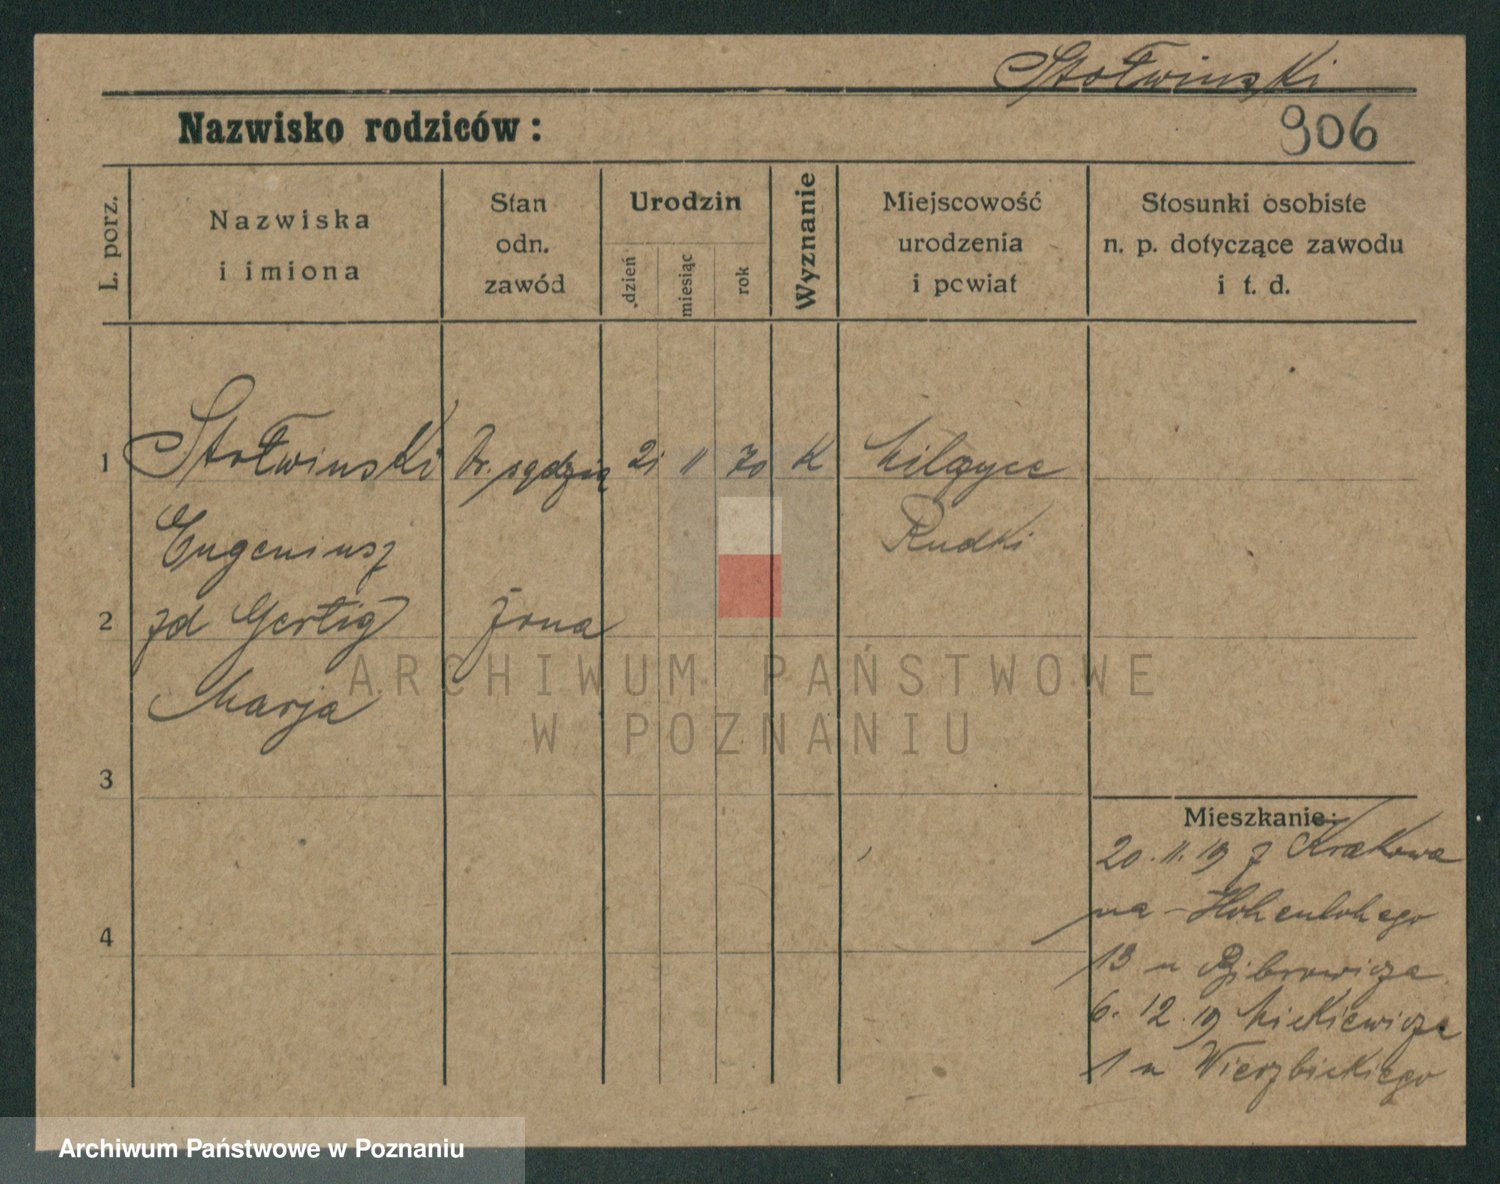 Stołwinski
Nazwisko rodziców:
906
L. porz.
Nazwiska
i imiona
Stan
odn.
zawód
Urodzin
dzień
miesiąc
rok
Wyznanie
Miejscowość
urodzenia
i powiat
Stosunki osobiste
n. p. dotyczące zawodu
i t. d.
1 Stołwinski Dr. sędzia 21 11 70 K
Eugeniusz Rudki
2 zd Gertig żona
Marja
ARCHIWUM PAŃSTWOWE
W POZNANIU
3
Mieszkanie:
20.11.19 z Krakowa
na Hohenlohego
4
13 u
6.12.19 Mickiewicza
1 u Wierzbickiego
Archiwum Państwowe w Poznaniu